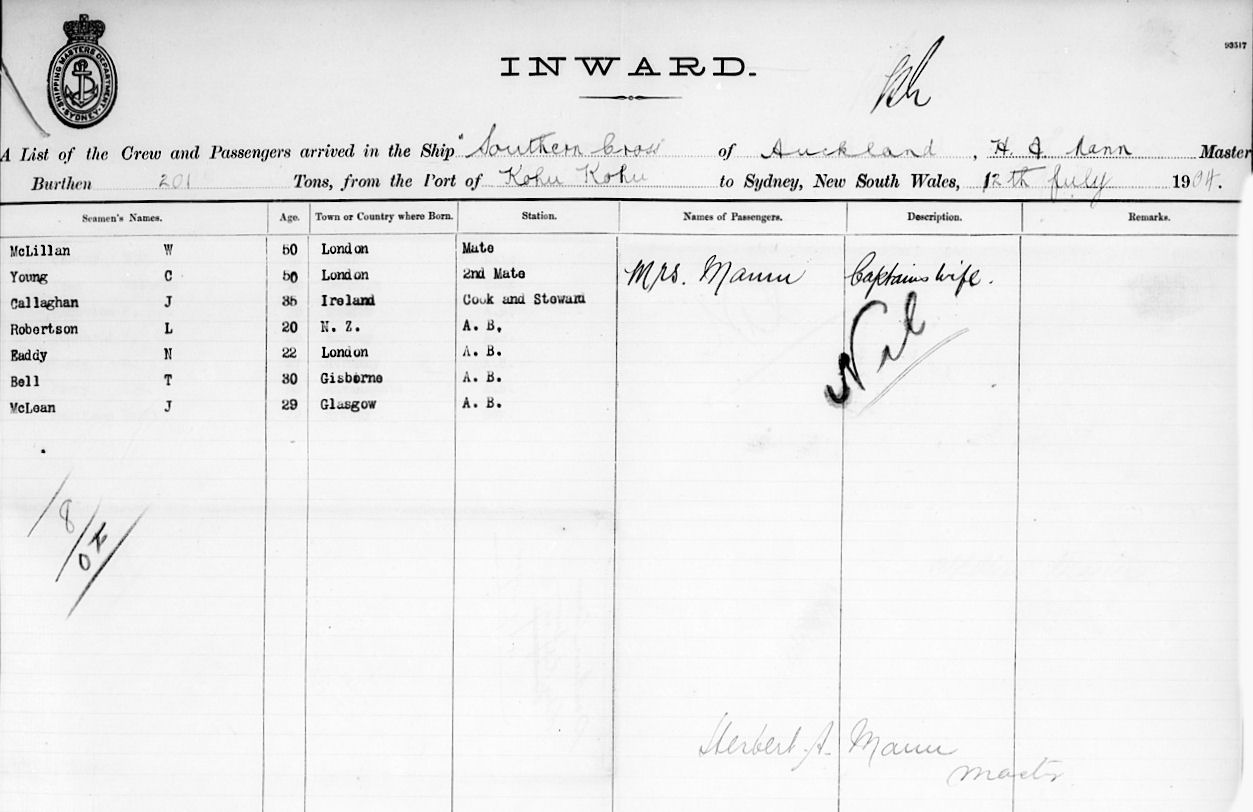 93517
SHIPPING MASTERS DEPARTMENT
SYDNEY
INWARD.
A List of the Crew and Passengers arrived in the Ship "Southern Cross" of Auckland, H. A. Mann Master
Burthen 201 Tons, from the Port of Kohu Kohu to Sydney, New South Wales, 12th July 1904.
Seamen's Names. Age. Town or Country where Born. Station. Names of Passengers. Description. Remarks.
McLillan W 50 London Mate
Young C 50 London 2nd Mate Mrs. Mann Captains wife.
Callaghan J 35 Ireland Cook and Steward
Robertson L 20 N. Z. A. B.
Eaddy N 22 London A. B.
Bell T 30 Gisborne A. B.
McLean J 29 Glasgow A. B.
Nil
8
Herbert A. Mann
Master